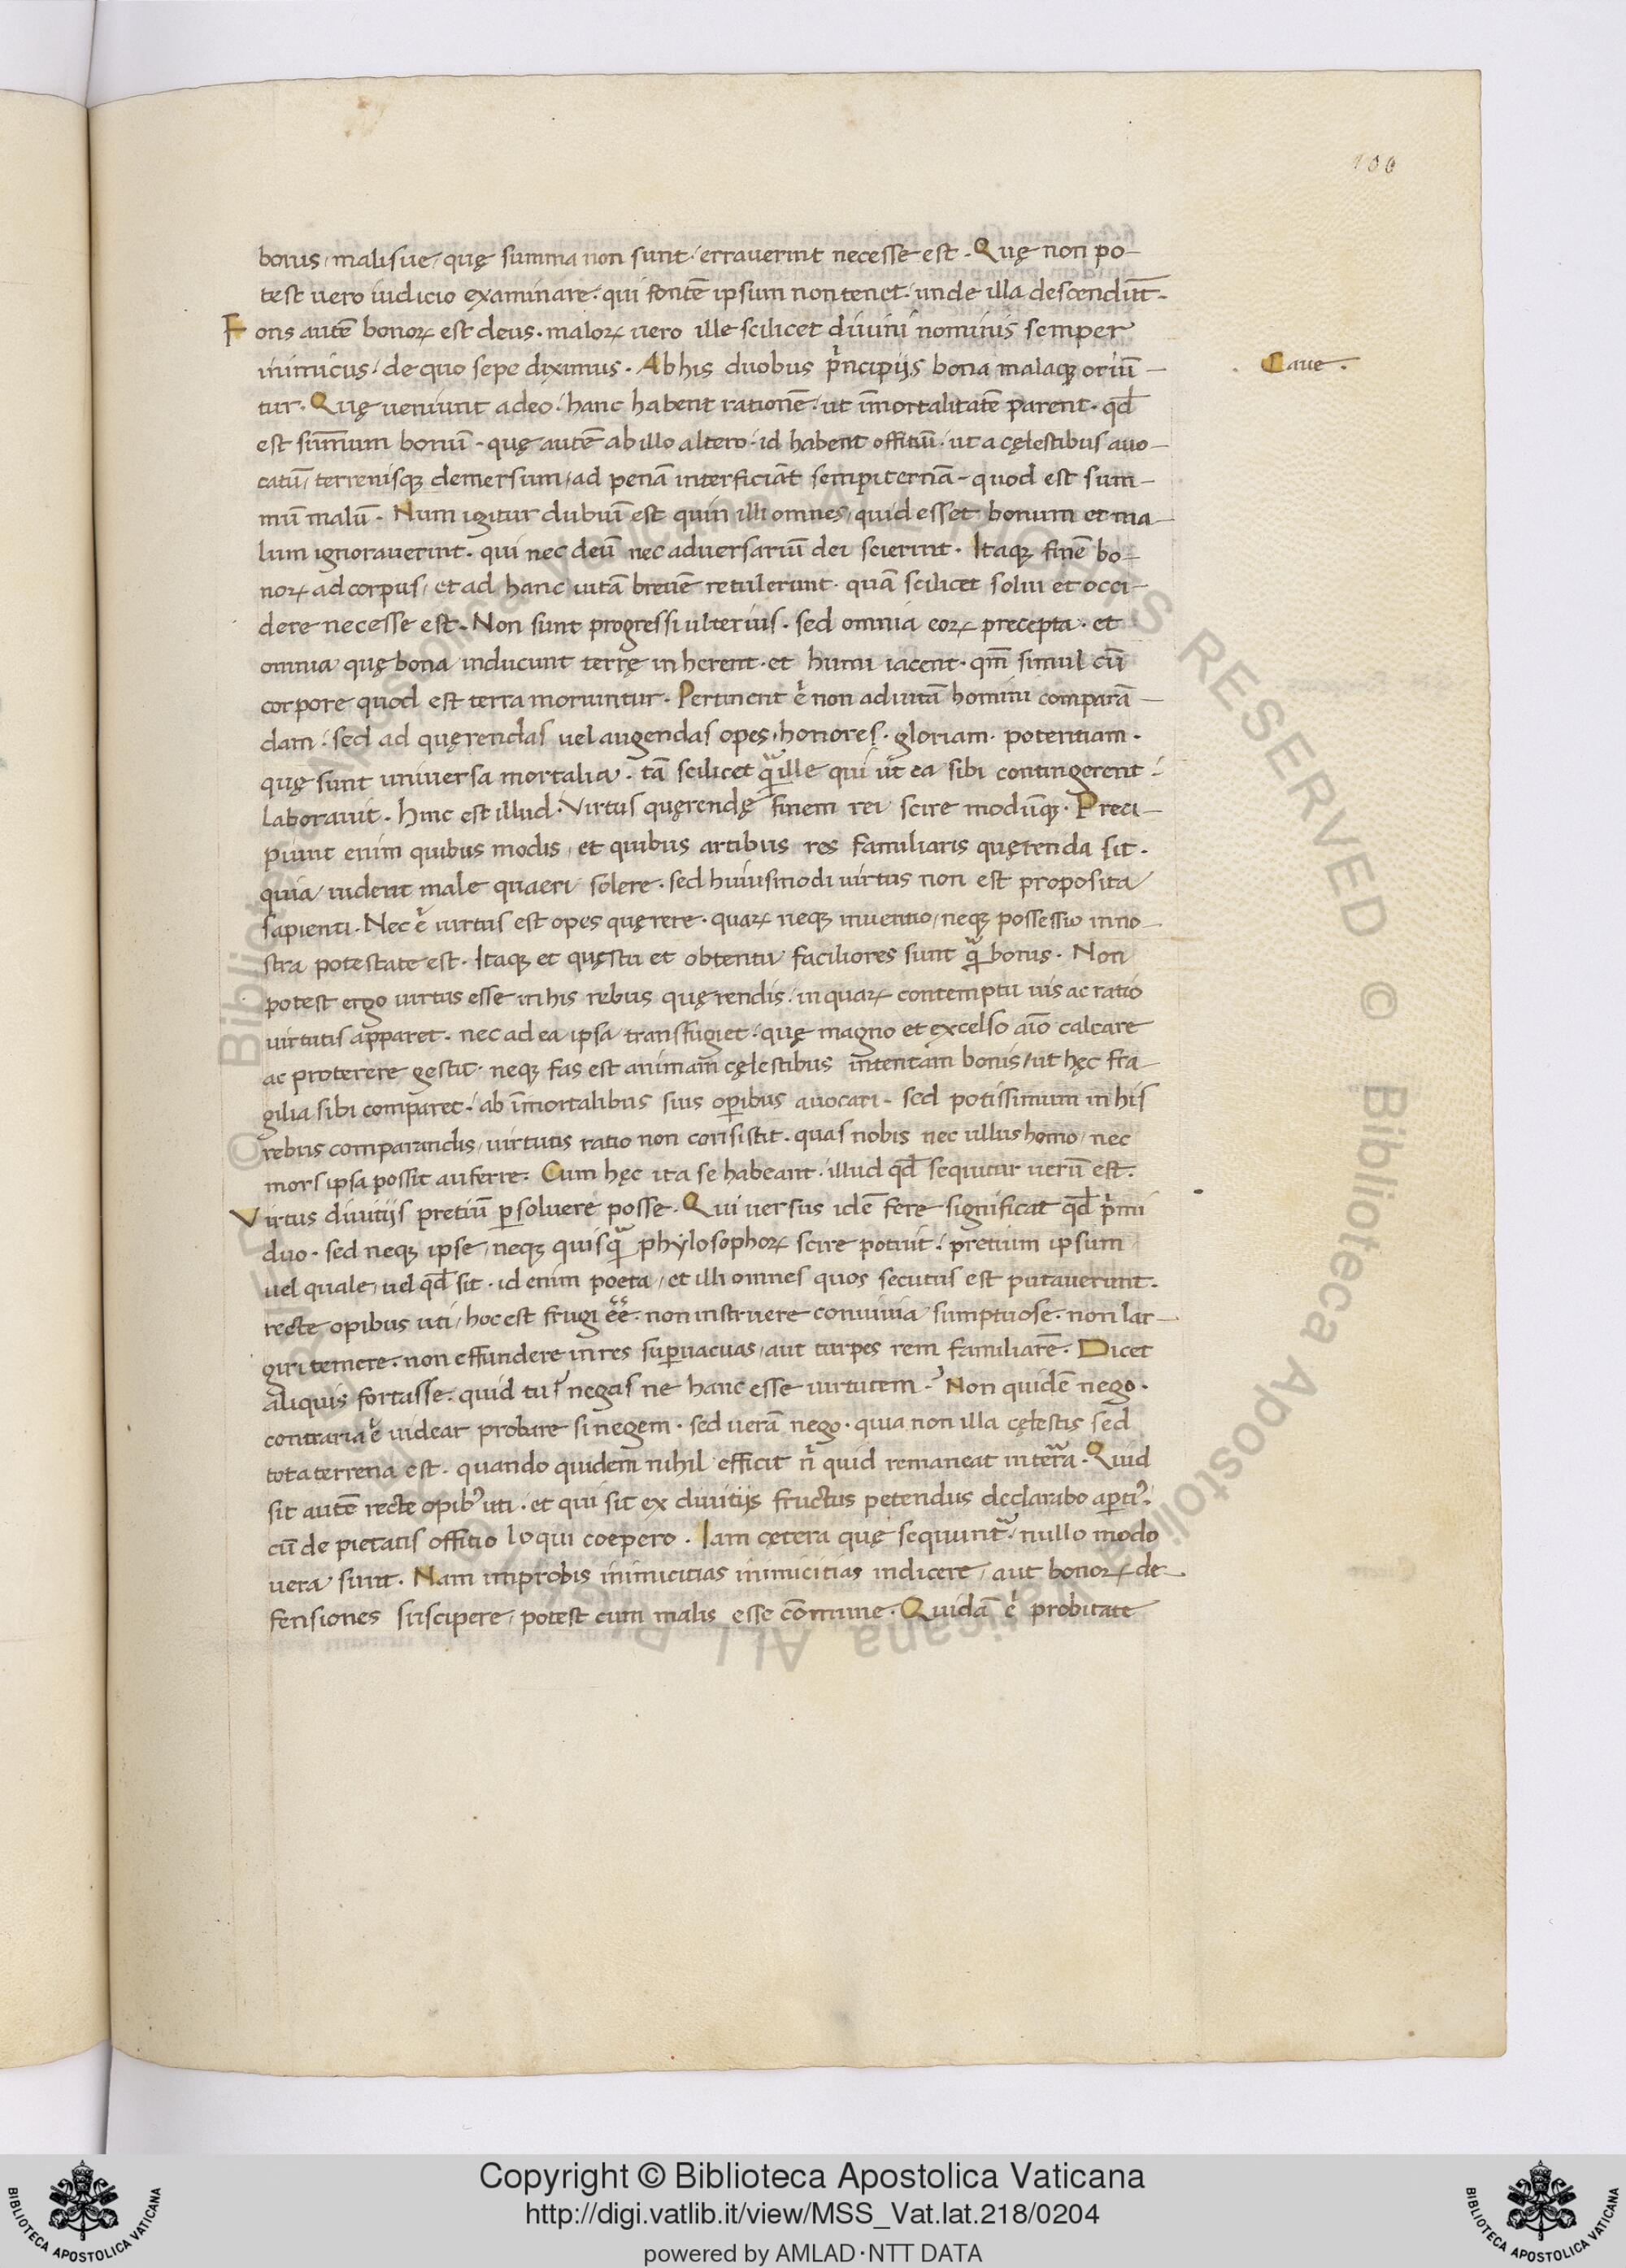 100
bonis, malisue, quę summa non sunt, erraverint necesse est. Quę non po-
test uero iudicio examinare, qui fontē ipsum non tenet, unde illa descendūt.
Fons autē bonoꝝ est deus. maloꝝ uero ille scilicet diuini nominis semper
inimicus, de quo sepe diximus. Ab his duobus prīncipijs bona malaqꝫ oriū-
Caue.
tur. Quę ueniunt a deo, hanc habent rationē, ut īmortalitatē parent. qđ
est sūmum bonū. quę autē ab illo altero, id habent offitiū, ut a cęlestibus auo-
catū, terrenisqꝫ demersum, ad penā interficiāt sempiternā. quod est sum-
mū malū. Num igitur dubiū est quin illi omnes, quid esset bonum et ma-
lum ignorauerint. qui nec deū nec aduersariū dei scierint. Itaqꝫ finē bo-
noꝝ ad corpus, et ad hanc uitā breuē retulerunt. quā scilicet solui et occi-
dere necesse est. Non sunt progressi ulterius. sed omnia eoꝝ precepta. et
omnia quę bona inducunt terrę inherent. et humi iacent. qm̄ simul cū
corpore quod est terra moriuntur. Pertinent .n. non ad uitā homini comparā-
dam: sed ad quęrendas uel augendas opes, honores, gloriam, potentiam.
quę sunt uniuersa mortalia. tā scilicet q̄ ille qui ut ea sibi contingerent:
laborauit. Hinc est illud. Virtus quęrendę finem rei scire modūqꝫ. Preci-
piunt enim quibus modis, et quibus artibus res familiaris quęrenda sit.
quia uident male quaeri solere. sed huiusmodi uirtus non est proposita
sapienti. Nec .n. uirtus est opes quęrere. quaꝝ neqꝫ inuentio, neqꝫ possessio in no-
stra potestate est. Itaqꝫ et quęstu et obtentu faciliores sunt q̄ bonis. Non
potest ergo uirtus esse in his rebus quęrendis, in quaꝝ contemptu uis ac ratio
uirtutis apparet. nec ad ea ipsa transfugiet, quę magno et excelso aīo calcare
ac proterere gestit. neqꝫ fas est animam cęlestibus intentam bonis, ut hęc fra-
gilia sibi comparet, ab īmortalibus suis oꝑibus auocari. sed potissimum in his
rebus comparandis, uirtutis ratio non consistit. quas nobis nec ullus homo, nec
mors ipsa possit auferre. Cum hęc ita se habeant, illud qđ sequitur uerū est.
Virtus diuitijs pretiū ꝑsoluere posse. Qui uersus idē fere significat qđ pīmi
duo. sed neqꝫ ipse, neqꝫ quisq̄ phylosophoꝝ scire potuit, pretium ipsum
uel quale, uel qđ sit. id enim poeta, et illi omnes quos secutus est putauerunt.
recte opibus uti, hoc est frugi eē. non instruere conuiuia sumptuose. non lar-
giri temere. non effundere in res suꝑuacuas, aut turpes rem familiarē. Dicet
aliquis fortasse. quid tu? negas ne hanc esse uirtutem? Non quidē nego.
contraria .n. uidear probare si negem. sed uerā nego. quia non illa cęlestis sed
tota terrena est. quando quidem nihil efficit n̄ quid remaneat in terra. Quid
sit autē recte opibꝰ uti. et qui sit ex diuitijs fructus petendus declarabo aꝑtiꝰ.
cū de pietatis offitio loqui coepero. Iam cętera quę sequunt̄, nullo modo
uera sunt. Nam improbis inimicitias inimicitias indicere, aut bonoꝝ de-
fensiones suscipere, potest cum malis esse cōmune. Quidā .n. probitate
Copyright © Biblioteca Apostolica Vaticana
http://digi.vatlib.it/view/MSS_Vat.lat.218/0204
powered by AMLAD·NTT DATA
BIBLIOTECA APOSTOLICA VATICANA
BIBLIOTECA APOSTOLICA VATICANA